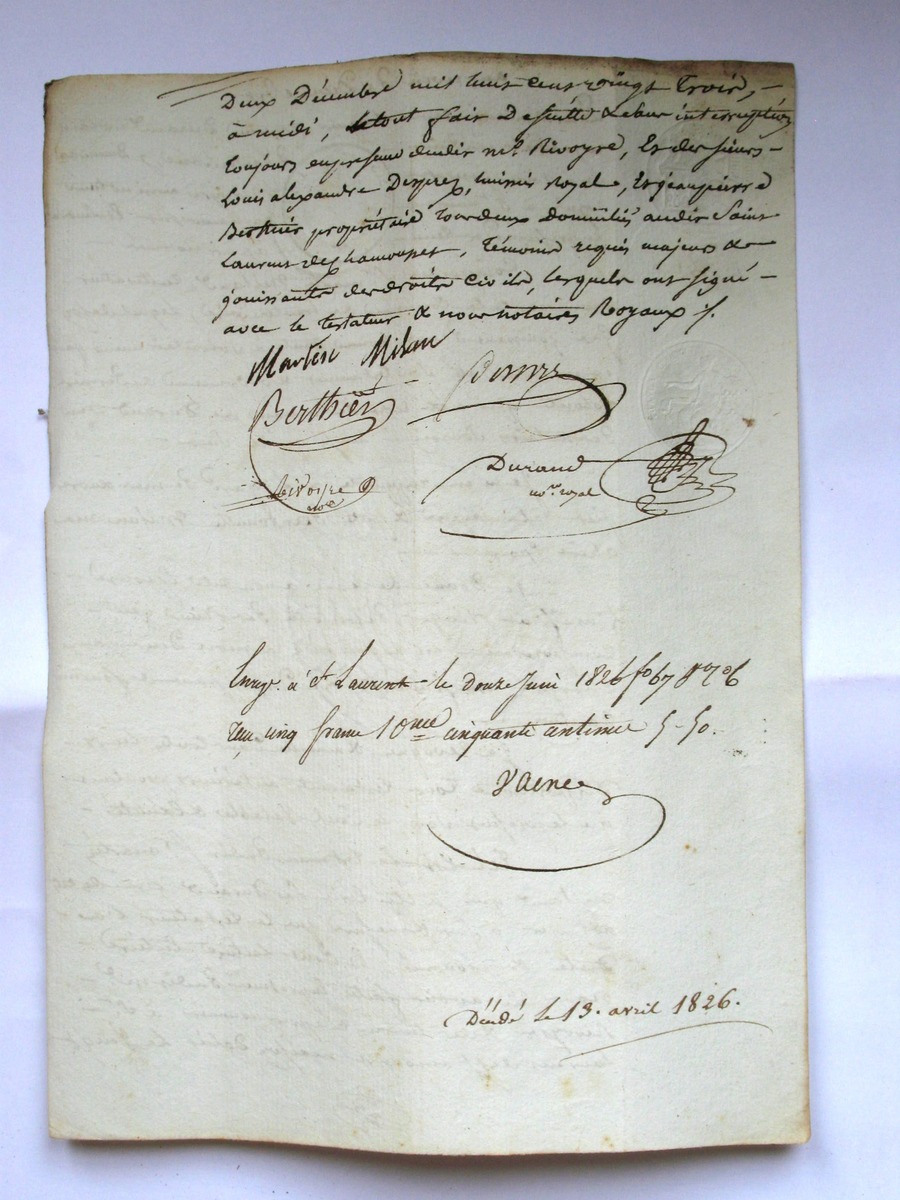 Deux Décembre mil huit cent vingt Trois, –
à midi, le tout fait De suitte & sans interruption
toujours en présence dudit me. Rivoyre, Et des sieurs –
Louis alexandre Desprez, huissier royal, Et jean pierre
Berthier propriétaire tous deux Domiciliés audit Saint
Laurent de Chamousset, Témoins requis majeurs &
jouissants des droits Civils, lesquels ont signé –
avec le testateur & nous notaires Royaux ./.
Martin Milan
Berthier
Rivoyre
nore
Durand
nore. royal
Enregé. à St Laurent le douze Juin 1826 fo 67
Reçu cinq francs 10me cinquante centimes 5-50.
Décédé le 13. avril 1826.